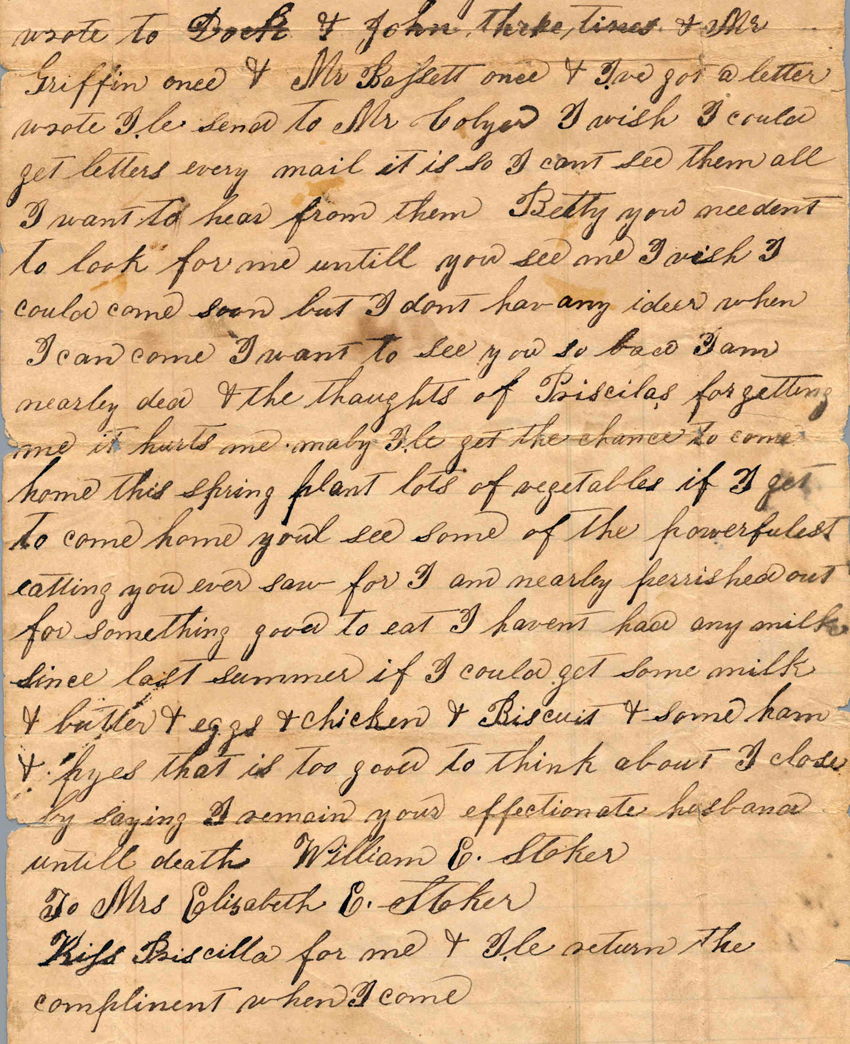 wrote to Dock & John three times & Mr
Griffin once & Mr Bassett once & I've got a letter
wrote I,le send to Mr Colyer I wish I could
get letters every mail it is so I cant see them all
I want to hear from them Betty you needent
to look for me untill you see me I wish I
could come soon but I dont hav any ideer when
I can come I want to see you so bad I am
nearley ded & the thaughts of Priscilas forgetting
me it hurts me maby I,le get the chance to come
home this spring plant lots of vegetables if I get
to come home youl see some of the powerfulest
eatting you ever saw for I am nearley perrished out
for something good to eat I havent had any milk
since last summer if I could get some milk
& butter & eggs & chicken & Biscuit & some ham
& pyes that is too good to think about I close
by saying I remain your effectionate husband
untill death William E. Stoker
To Mrs Elizabeth E. Stoker
Kiss Priscilla for me & I,le return the
complinent when I come